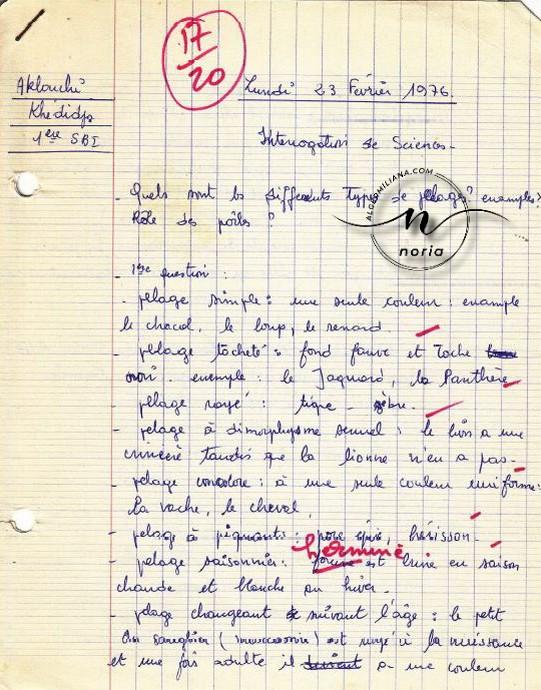 17
20
Aklouchi
Khédidja
1ère SBI
Lundi 23 Février 1976.
Interrogation de Sciences-
- Quels sont les différents types de pelages? examples?
Rôle des poils ?
ALGERMILIANA.COM
n
noria
- 1ère question :
- pelage simple : une seule couleur : example
le chacal, le loup, le renard.
- pelage tacheté : fond fauve et tache
noir. exemple : le Jaguard, la Panthère
- pelage rayé : tigre - zèbre.
- pelage à dimorphysme sexuel : le lion a une
crinière tandis que la lionne n'en a pas-
- pelage concolore : à une seule couleur uniforme:
la vache, le cheval,
- pelage à piquants : porc épic, hérisson-
hermine
- pelage saisonnier : est brine en saison
chaude et blanche en hiver.
- pelage changeant suivant l'âge : le petit
du sanglier (marcassin) est rayé à la naissance
et une fois adulte il a une couleur